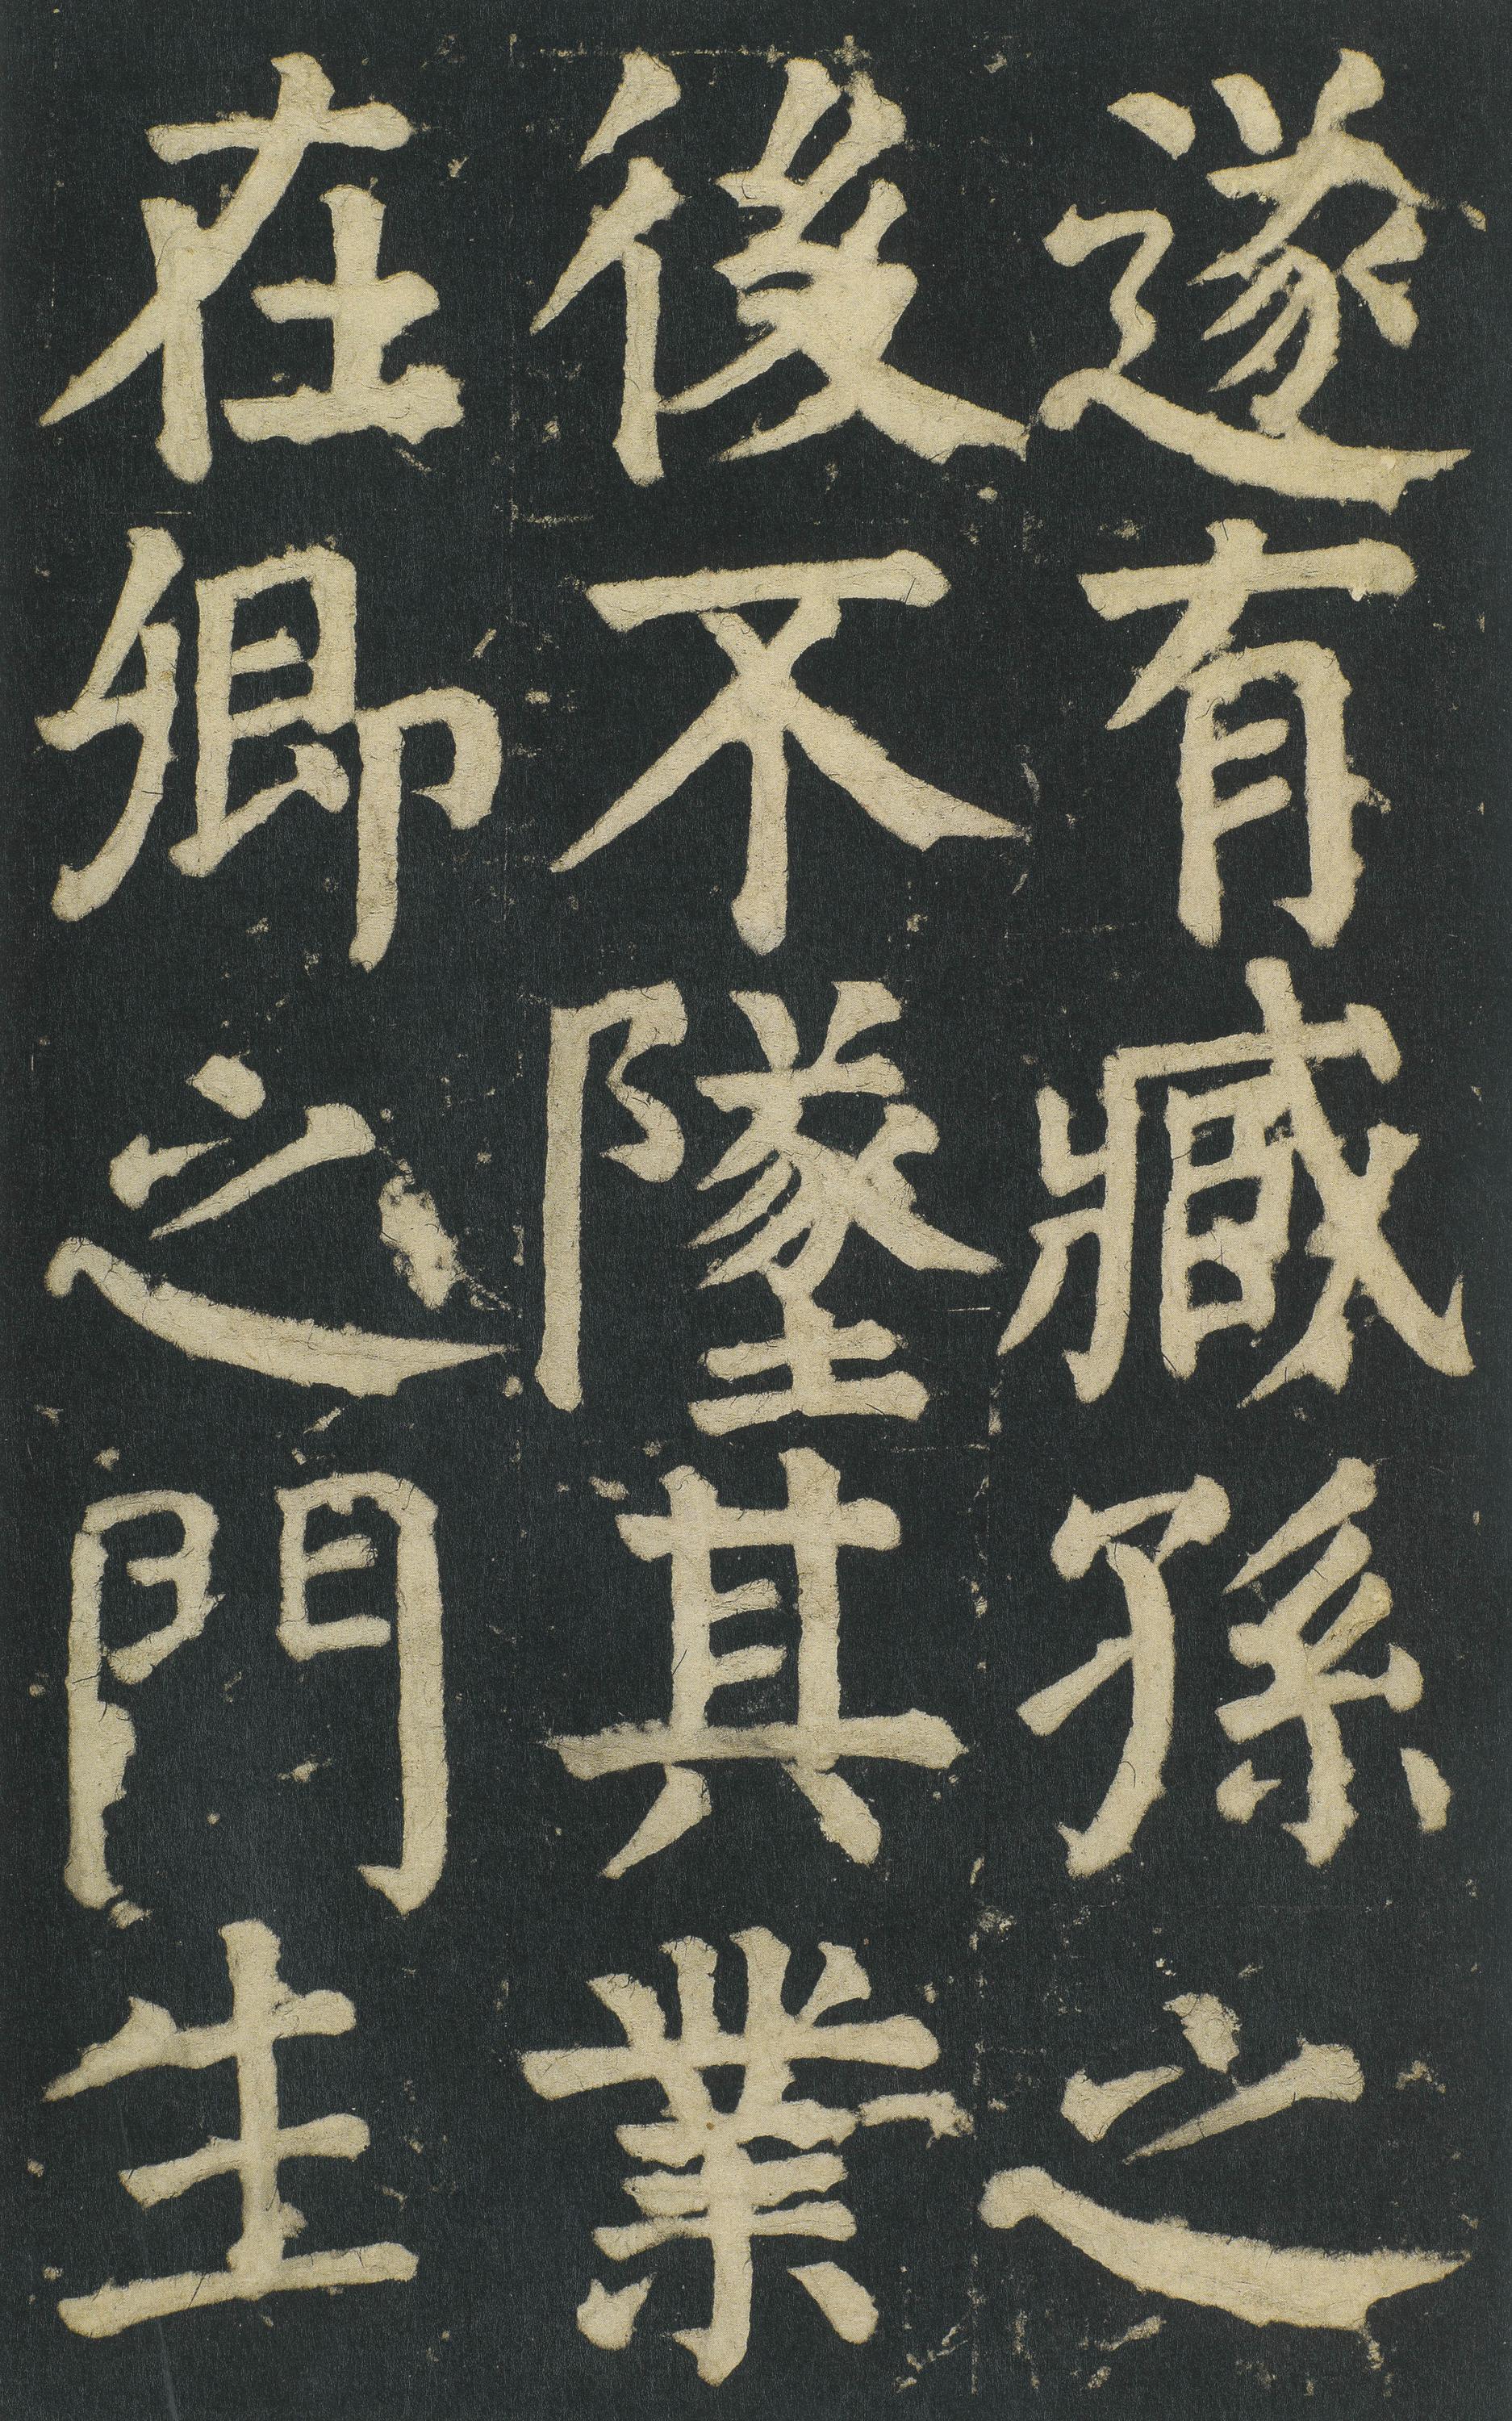 遂有臧孫之
後不墜其業
在卿之門生